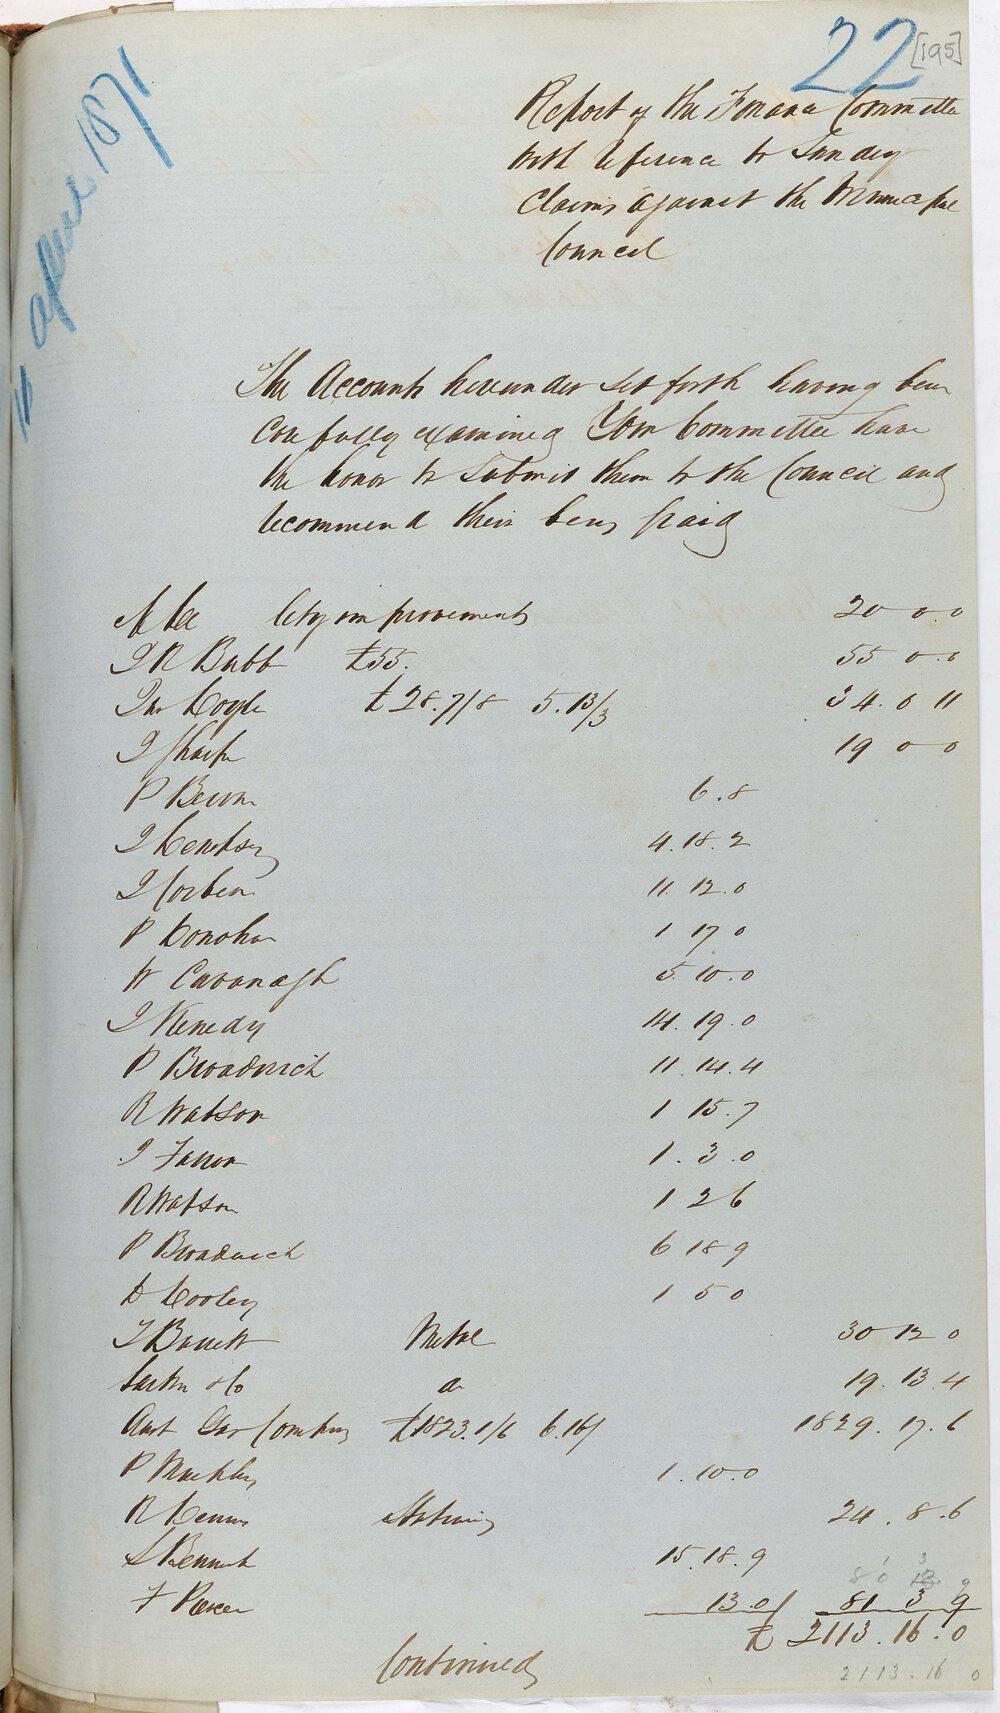 22 [195]
11 April 1871
Report of the Finance Committee
with reference to Sundry
Claims against the Municipal
Council
The Accounts hereunder set forth having been
carefully examined Your Committee have
the honor to submit them to the Council and
recommend their being paid
City improvements 20 0.0
J R Bubb £55. 55 0.0
Jas Coyle £28.7/8 5.13/3 34.0 11
J Sharpe 19 0 0
P Beirne 6.8
4.18.2
J Corben 11.12.0
P Donohoe 1 17 0
W Cavanagh 5.10.0
J Kenedy 14.19.0
P Broadrich 11.14.4
R Watson 1 15.7
J Farron 1.3.0
R Watson 1 2 6
P Broadrich 6 18 9
D Cooley 1 5 0
T Barrett Metal 30 12 0
Larkin & Co do 19.13.4
Aust Gas Company £1823.1/6 6.16/ 1829.17.6
P 1.10.0
R Stationery 24.8.6
S Bennett 15.18.9
F 13.0 81 3 9
£ 2113.16.0
Continued
2113.16 0